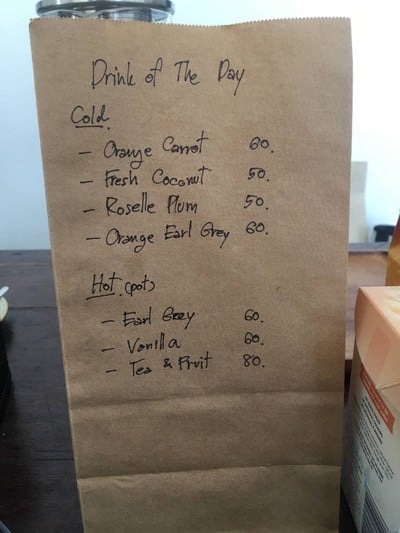 Drink of The Day
Cold
- Orange Carrot 60.
- Fresh Coconut 50.
- Roselle Plum 50.
- Orange Earl Grey 60.
Hot (pots)
- Earl Grey 60.
- Vanilla 60.
- Tea & Fruit 80.